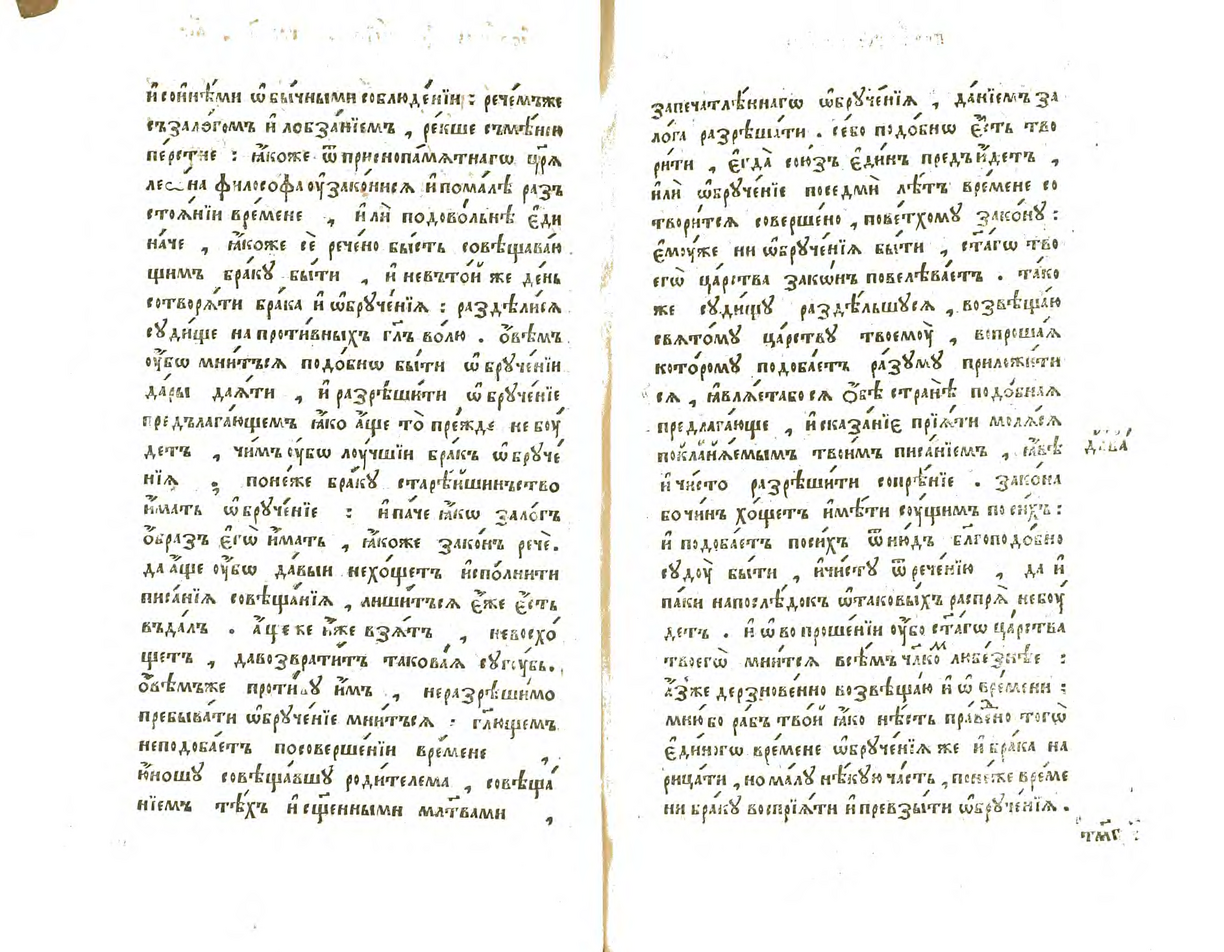 и҆ сои́нѣми ѡ҆бы́чными соблюде́нїи : рече́мъже
съзало́гомъ и҆ лобза́нїемъ , ре́кше съмѣ́ною
пе́рстне : ꙗ҆́коже ѿ приснопа́мѧтнагѡ цр҃ѧ̀
на филосо́фа оу҆зако́нисѧ и҆ пома́лѣ раз̾
стоѧ́нїи вре́мене , и҆лѝ подово́льнѣ є҆ди
на́че , ꙗ҆́коже сѐ рече́но бы́сть совѣщава́ю
щимъ бра́ку бы́ти , и҆ невъто́й же де́нь
сотворѧ́ти бра́ка и҆ ѡ҆бруче́нїѧ : раздѣли́сѧ
суди́ще на проти́вныхъ гл҃ъ во́лю . ѻ҆вѣ́мъ
оу҆́бѡ мни́тъсѧ подо́бнѡ бы́ти ѡ҆бруче́нїи
да́ры даѧ́ти , и҆ разрѣши́ти ѡ҆бруче́нїе
предълага́ющемъ ꙗ҆́ко а҆́ще то̀ пре́жде не боу́
детъ , чи́мъ оу҆́бѡ лоу́чшїи бра́къ ѡ҆бруче́
нїѧ ; поне́же бра́ку старѣ́йшинъство
и҆́мать ѡ҆бруче́нїе : и҆ па́че ꙗ҆́кѡ зало́гъ
ѻ҆́бразъ є҆гѡ̀ и҆́мать , ꙗ҆́коже зако́нъ речѐ.
да а҆́ще оу҆́бѡ да́выи нехо́щетъ и҆спо́лнити
писа́нїѧ совѣща́нїѧ , лиши́тъсѧ є҆́же є҆́сть
въда́лъ . а҆́ще же и҆́же взѧ́тъ , невосхо́
щетъ , давозврати́тъ такова́ѧ сугу́бь.
ѻ҆вѣ́мъже проти́ву и҆̀мъ , неразрѣши́мо
пребыва́ти ѡ҆бруче́нїе мни́тъсѧ : гл҃ющемъ
неподоба́етъ посоверше́нїи вре́мене ,
ю҆́ношу совѣща́вшу роди́телема , совѣща́
нїемъ тѣ́хъ и҆ сщ҃е́нными мл҃твами ,
запечатлѣ́ннагѡ ѡ҆бруче́нїѧ , да́нїемъ за
ло́га разрѣша́ти . се́бо подо́бнѡ є҆́сть тво
ри́ти , є҆гда̀ сою́зъ є҆ди́нъ предъи҆́детъ ,
и҆лѝ ѡ҆бруче́нїе поседмѝ лѣ́тъ вре́мене со
твори́тсѧ соверше́но , пове́тхому зако́ну :
є҆му́же ни ѡ҆бруче́нїѧ бы́ти , ст҃а́гѡ тво
егѡ̀ ца́рства зако́нъ повелѣва́етъ . та́ко
же суди́щу раздѣ́льшусѧ , возвѣща́ю
свѧто́му ца́рству твоемоу̀ , вопроша́ѧ
кото́рому подоба́етъ ра́зуму приложи́ти
сѧ , ꙗ҆влѧ́етабосѧ ѻ҆́бѣ странѣ̀ подо́бнаѧ
предлага́юще , и҆ сказа́нїе прїѧ́ти молѧ́сѧ
покланѧ́емымъ твои́мъ писа́нїемъ , ꙗ҆́вѣ
и҆ чи́сто разрѣши́ти сопрѣ́нїе . зако́на
бо чи́нъ хо́щетъ и҆мѣ́ти су́щимъ по си́хъ :
и҆ подоба́етъ поси́хъ ѿню́дъ бл҃гоподо́бно
судоу̀ бы́ти , и҆ чи́сту ѿрече́нїю , да и҆
па́ки напослѣ́докъ ѡ҆таковы́хъ ра́спрѧ небоу́
детъ . и҆ ѡ҆ вопроше́нїи оу҆́бо ст҃а́гѡ ца́рства
твоегѡ̀ мни́тсѧ всѣ́мъ чл҃комъ любе́знѣе :
а҆́зъже дерзнове́нно возвѣща́ю и҆ ѡ҆ вре́мени :
мню́бо ра́бъ тво́й ꙗ҆́ко нѣ́сть пра́ведно тогѡ̀
є҆ди́ногѡ вре́мене ѡ҆бруче́нїѧ же и҆ бра́ка на
рица́ти , но ма́лу нѣ́кую ча́сть , поне́же вре́ме
ни бра́ку воспрїѧ́ти и҆ превзы́ти ѡ҆бруче́нїѧ .